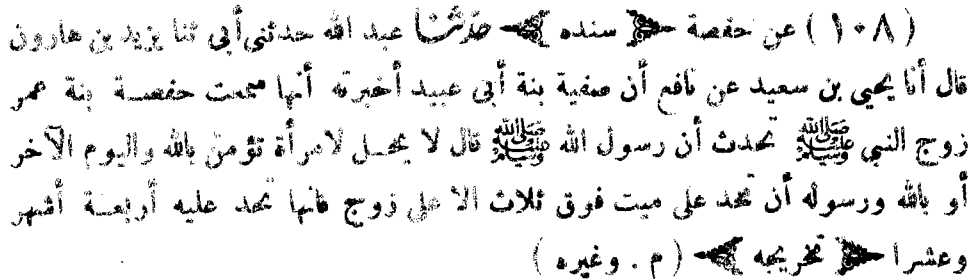 (١٠٨) عن حفصة ﴿ سنده ﴾ حدثنا عبد الله حدثني أبي ثنا يزيد بن هارون
قال أنا يحيى بن سعيد عن نافع أن صفية بنة أبي عبيد أخبرته أنها سمعت حفصة بنة عمر
زوج النبي ﷺ تحدث أن رسول الله ﷺ قال لا يحل لامرأة تؤمن بالله واليوم الآخر
أو بالله ورسوله أن تحد على ميت فوق ثلاث الا على زوج فانها تحد عليه أربعة أشهر
وعشرا ﴿ تخريجه ﴾ (م . وغيره )